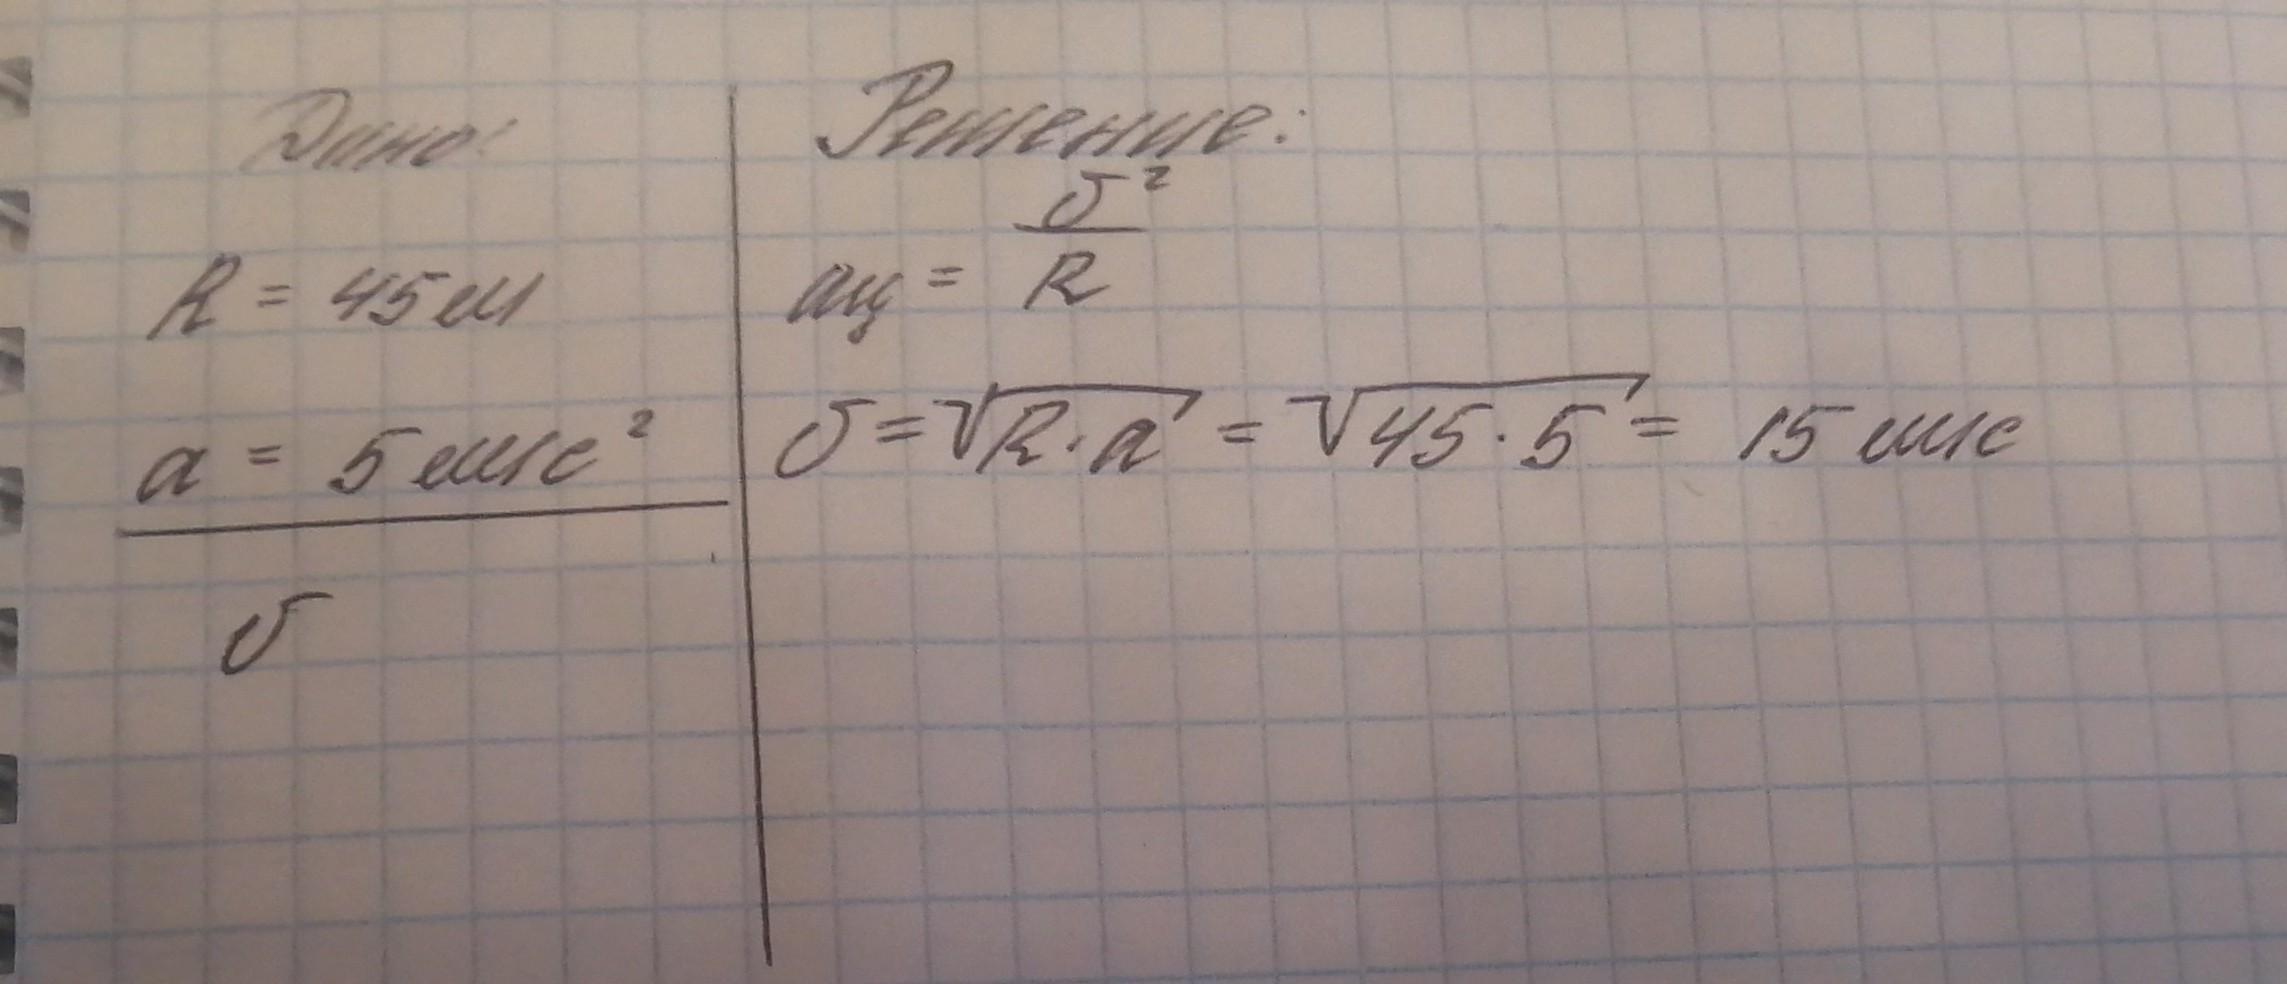 Дано:
R = 45 м
a = 5 м/с²
υ
Решение:
aц = υ² / R
υ = √R · a = √45 · 5 = 15 м/с